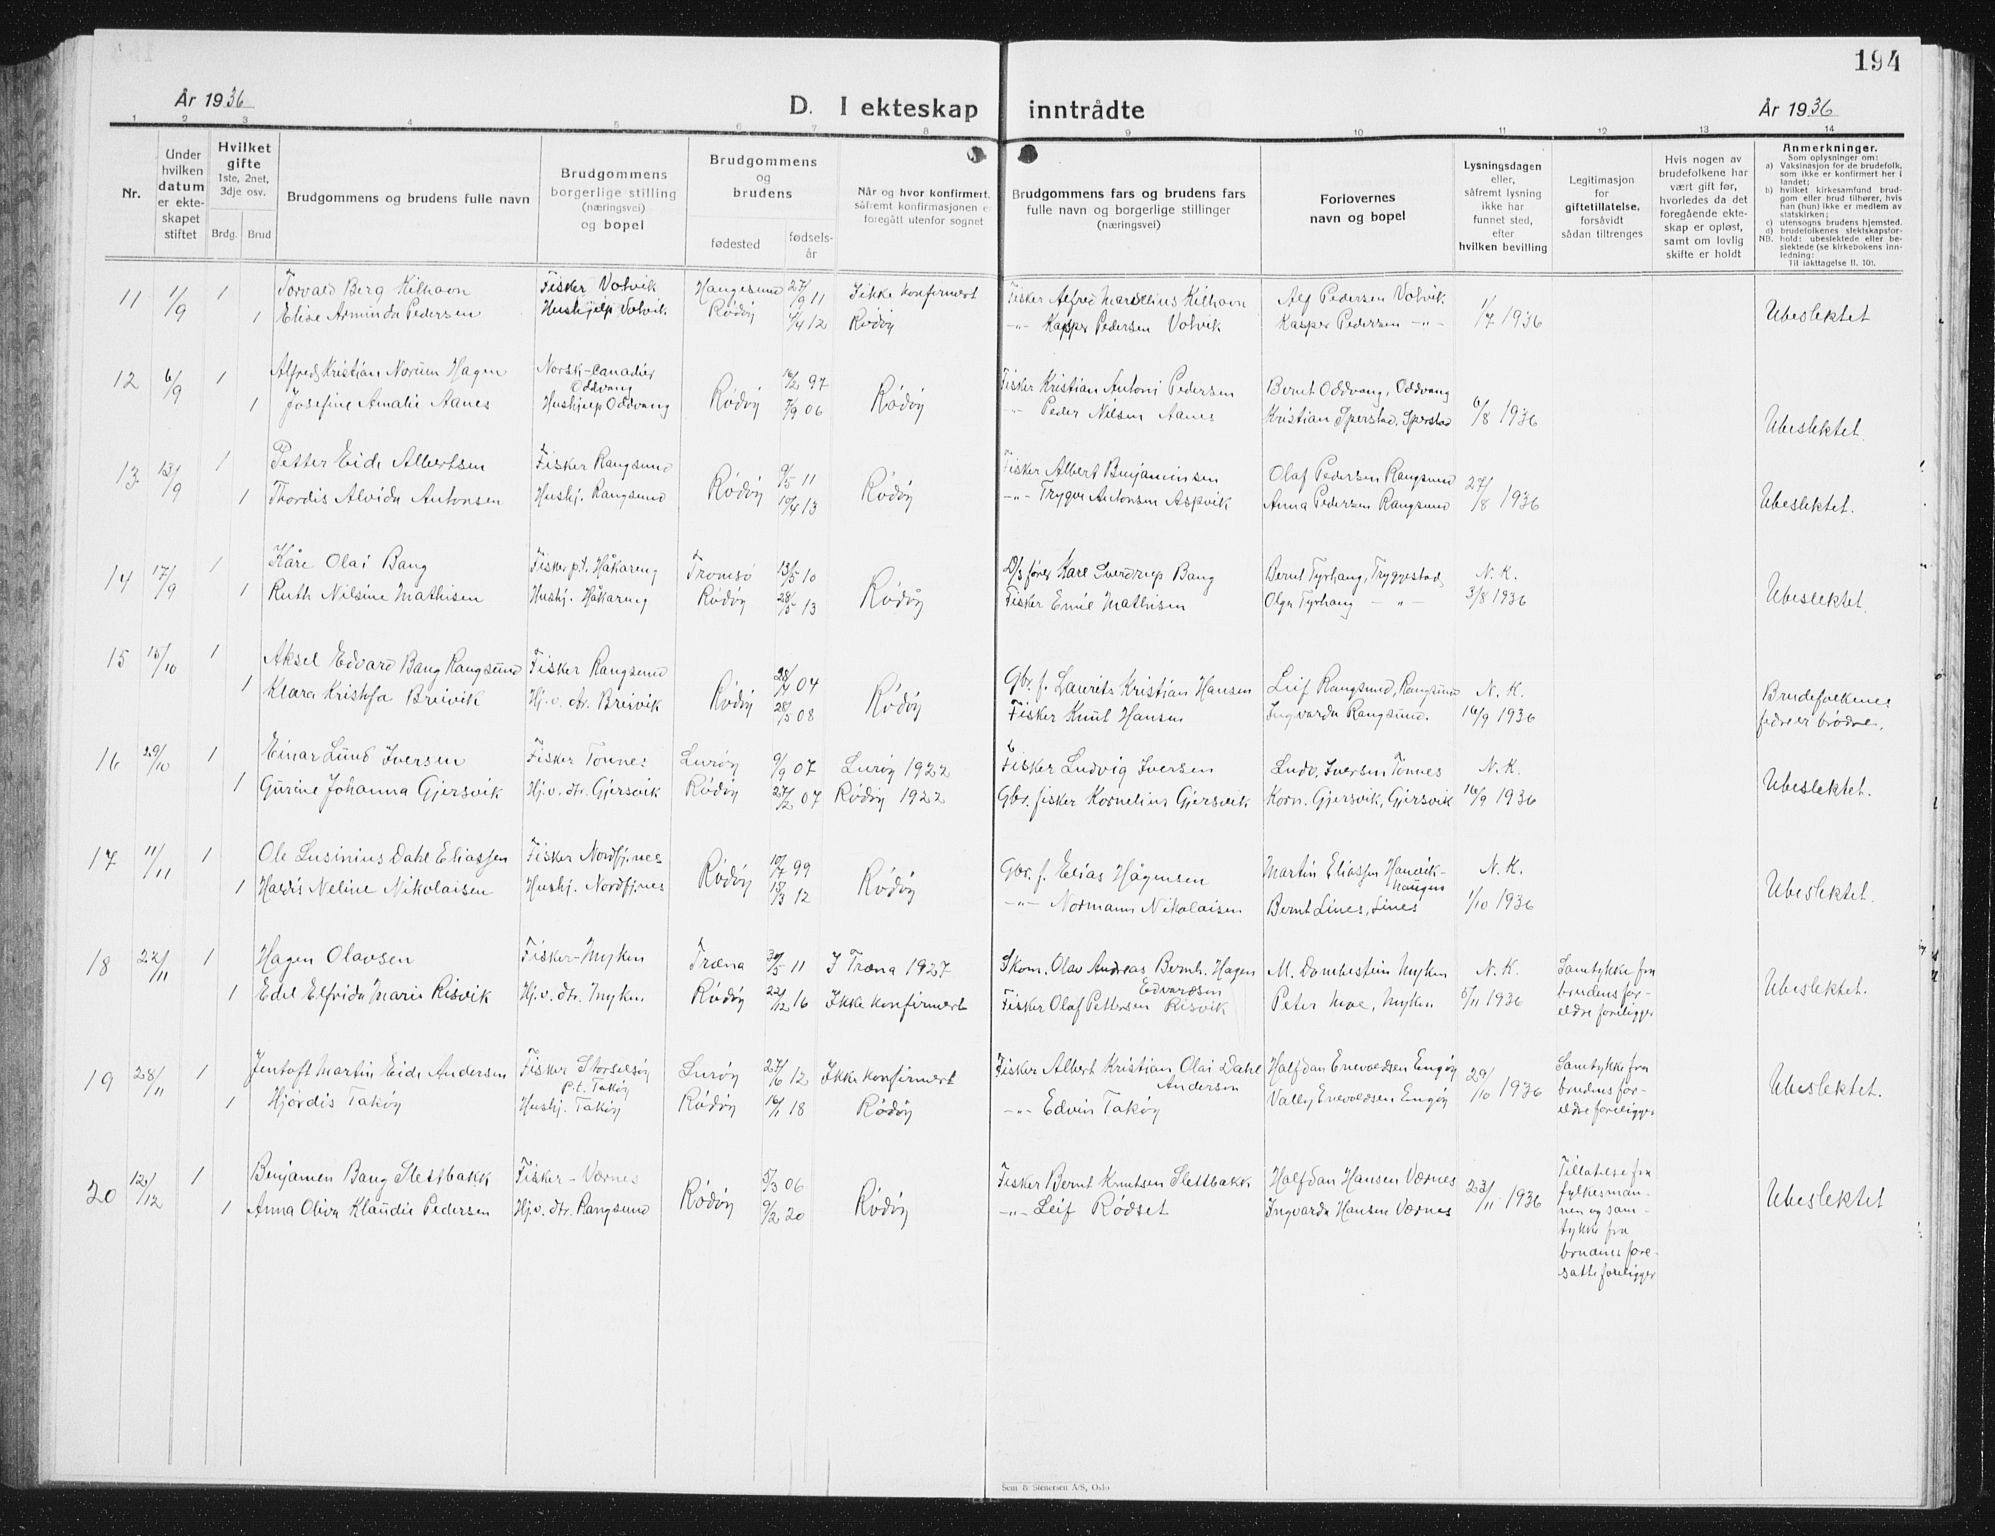 194
År 1936 D. I ekteskap inntrådte År 1936
1 2 3 4 5 6 7 8 9 10 11 12 13 14
Nr.
Under hvilken datum er ekteskapet stiftet
Hvilket gifte 1ste, 2net, 3dje osv.
Brdg. Brud
Brudgommens og brudens fulle navn
Brudgommens borgerlige stilling (næringsvei) og bopel
Brudgommens og brudens
fødested fødselsår
Når og hvor konfirmert, såfremt konfirmasjonen er foregått utenfor sognet
Brudgommens fars og brudens fars fulle navn og borgerlige stillinger (næringsvei)
Forlovernes navn og bopel
Lysningsdagen eller, såfremt lysning ikke har funnet sted, efter hvilken bevilling
Legitimasjon for giftetillatelse, forsåvidt sådan tiltrenges
Hvis nogen av brudefolkene har vært gift før, hvorledes da det foregående ekteskap er opløst, samt om lovlig skifte er holdt
Anmerkninger.
Som oplysninger om:
a) Vaksinasjon for de brudefolk, som ikke er konfirmert her i landet;
b) hvilket kirkesamfund brudgom eller brud tilhører, hvis han (hun) ikke er medlem av statskirken;
c) utensogns brudens hjemsted.
d) brudefolkenes slektskapsforhold: ubeslektede eller beslektede (se kirkebokens innledning:
NB. Til iakttagelse II. 10).
11 11/9 1 Torvald Berg Kilhavn Fisker Volvik Haugesund 27/9 11 Ikke konfirmert Fisker Alfred Marselius Kilhavn Alf Pedersen Volvik 1/7 1936 Ubeslektet
1 Elise Arminda Pedersen Hushjelp Volvik Rødøy 4/4 12 Rødøy -"- Kasper Pedersen Volvik Kasper Pedersen -"-
12 6/9 1 Alfred Kristian Norum Hagen Norsk-Canadier Oddvang Rødøy 16/2 97 Rødøy Fisker Kristian Antoni Pedersen Bernt Oddvang, Oddvang 6/8 1936 Ubeslektet.
1 Josefine Amalie Aanes Hushjelp Oddvang 7/9 06 " Peder Nilsen Aanes Kristian Sperstad, Sperstad
13 13/9 1 Petter Eide Albertsen Fisker Rangsund Rødøy 9/5 11 Rødøy Fisker Albert Benjaminsen Olaf Pedersen Rangsund 27/8 1936 Ubeslektet.
1 Thordis Alvida Antonsen Hushj. Rangsund 19/4 13 -"- Trygve Antonsen Aspvik Anna Pedersen Rangsund
14 17/9 1 Kåre Olai Bang Fisker p.t. Håkareng Tromsø 13/5 10 Rødøy D/s fører Karl Sverdrup Bang Bernt Tyrhaug, Tryggestad N. K. Ubeslektet.
1 Ruth Nilsine Mathisen Hushj. Håkareng Rødøy 28/5 13 Fisker Emil Mathisen Olga Tyrhaug -"- 3/8 1936
15 15/10 1 Aksel Edvard Bang Rangsund Fisker Rangsund Rødøy 28/7 04 Rødøy Gbr. f. Laurits Kristian Hansen Leif Rangsund, Rangsund N. K. Brudefolkenes
1 Klara Kristofa Breivik Hj. v. dtr. Breivik 28/5 08 Fisker Knut Hansen Ingvarda Rangsund. 16/9 1936 fedre er brødre.
16 29/10 1 Einar Lund Iversen Fisker Tonnes Lurøy 9/9 07 Lurøy 1922 Fisker Ludvig Iversen Ludv. Iversen Tonnes N. K. Ubeslektet.
1 Gurine Johanna Gjersvik Hj. v. dtr. Gjersvik Rødøy 27/2 07 Rødøy 1922 Gbr. fisker Kornelius Gjersvik Korn. Gjersvik, Gjersvik 16/9 1936
17 11/11 1 Ole Lusinius Dahl Eliassen Fisker Nordfjnes Rødøy 10/7 99 Rødøy Gbr. f. Elias Hågensen Martin Eliassen Handikhaugen N. K. Ubeslektet.
1 Haldis Neline Nikolaisen Hushj. Nordfjnes 15/3 12 -"- Normann Nikolaisen Bernt Lines, Lines 1/10 1936
18 22/11 1 Hagen Olavsen Fisker-Myken Træna 30/5 11 I Træna 1927 Skom. Olav Andreas Bernh. Hagen Edvardsen M. Dambestein Myken N. K. Samtykke fra brudens foreldre foreligger Ubeslektet.
1 Edel Elfrida Marie Risvik Hj. v. dtr. Myken Rødøy 22/12 16 Ikke konfirmert Fisker Olaf Pettersen Risvik Peter Moe, Myken 5/11 1936
19 28/11 1 Jentoft Martin Eide Andersen Fisker Storselsøy p.t. Takøy Lurøy 27/6 12 Ikke konfirmert Fisker Albert Kristian Olai Dahl Anderson Halfdan Enevoldsen Engøy 29/10 1936 Samtykke fra brudens foreldre foreligger Ubeslektet.
1 Hjørdis Takøy Hushj. Takøy Rødøy 16/1 18 Rødøy -"- Edvin Takøy Vally Enevoldsen Engøy
20 12/12 1 Benjamen Bang Slettbakk Fisker - Værnes Rødøy 5/3 06 Rødøy Fisker Bernt Knutsen Slettbakk Halfdan Hansen Værnes 23/11 1936 Tillatelse fra fylkesmannen og samtykke fra brudens foresatte foreligger Ubeslektet
1 Anna Oliva Klaudie Pedersen Hj. v. dtr. Rangsund 9/2 20 -"- Leif Rødset Ingvarda Hansen Værnes
Sem & Stenersen A/S, Oslo